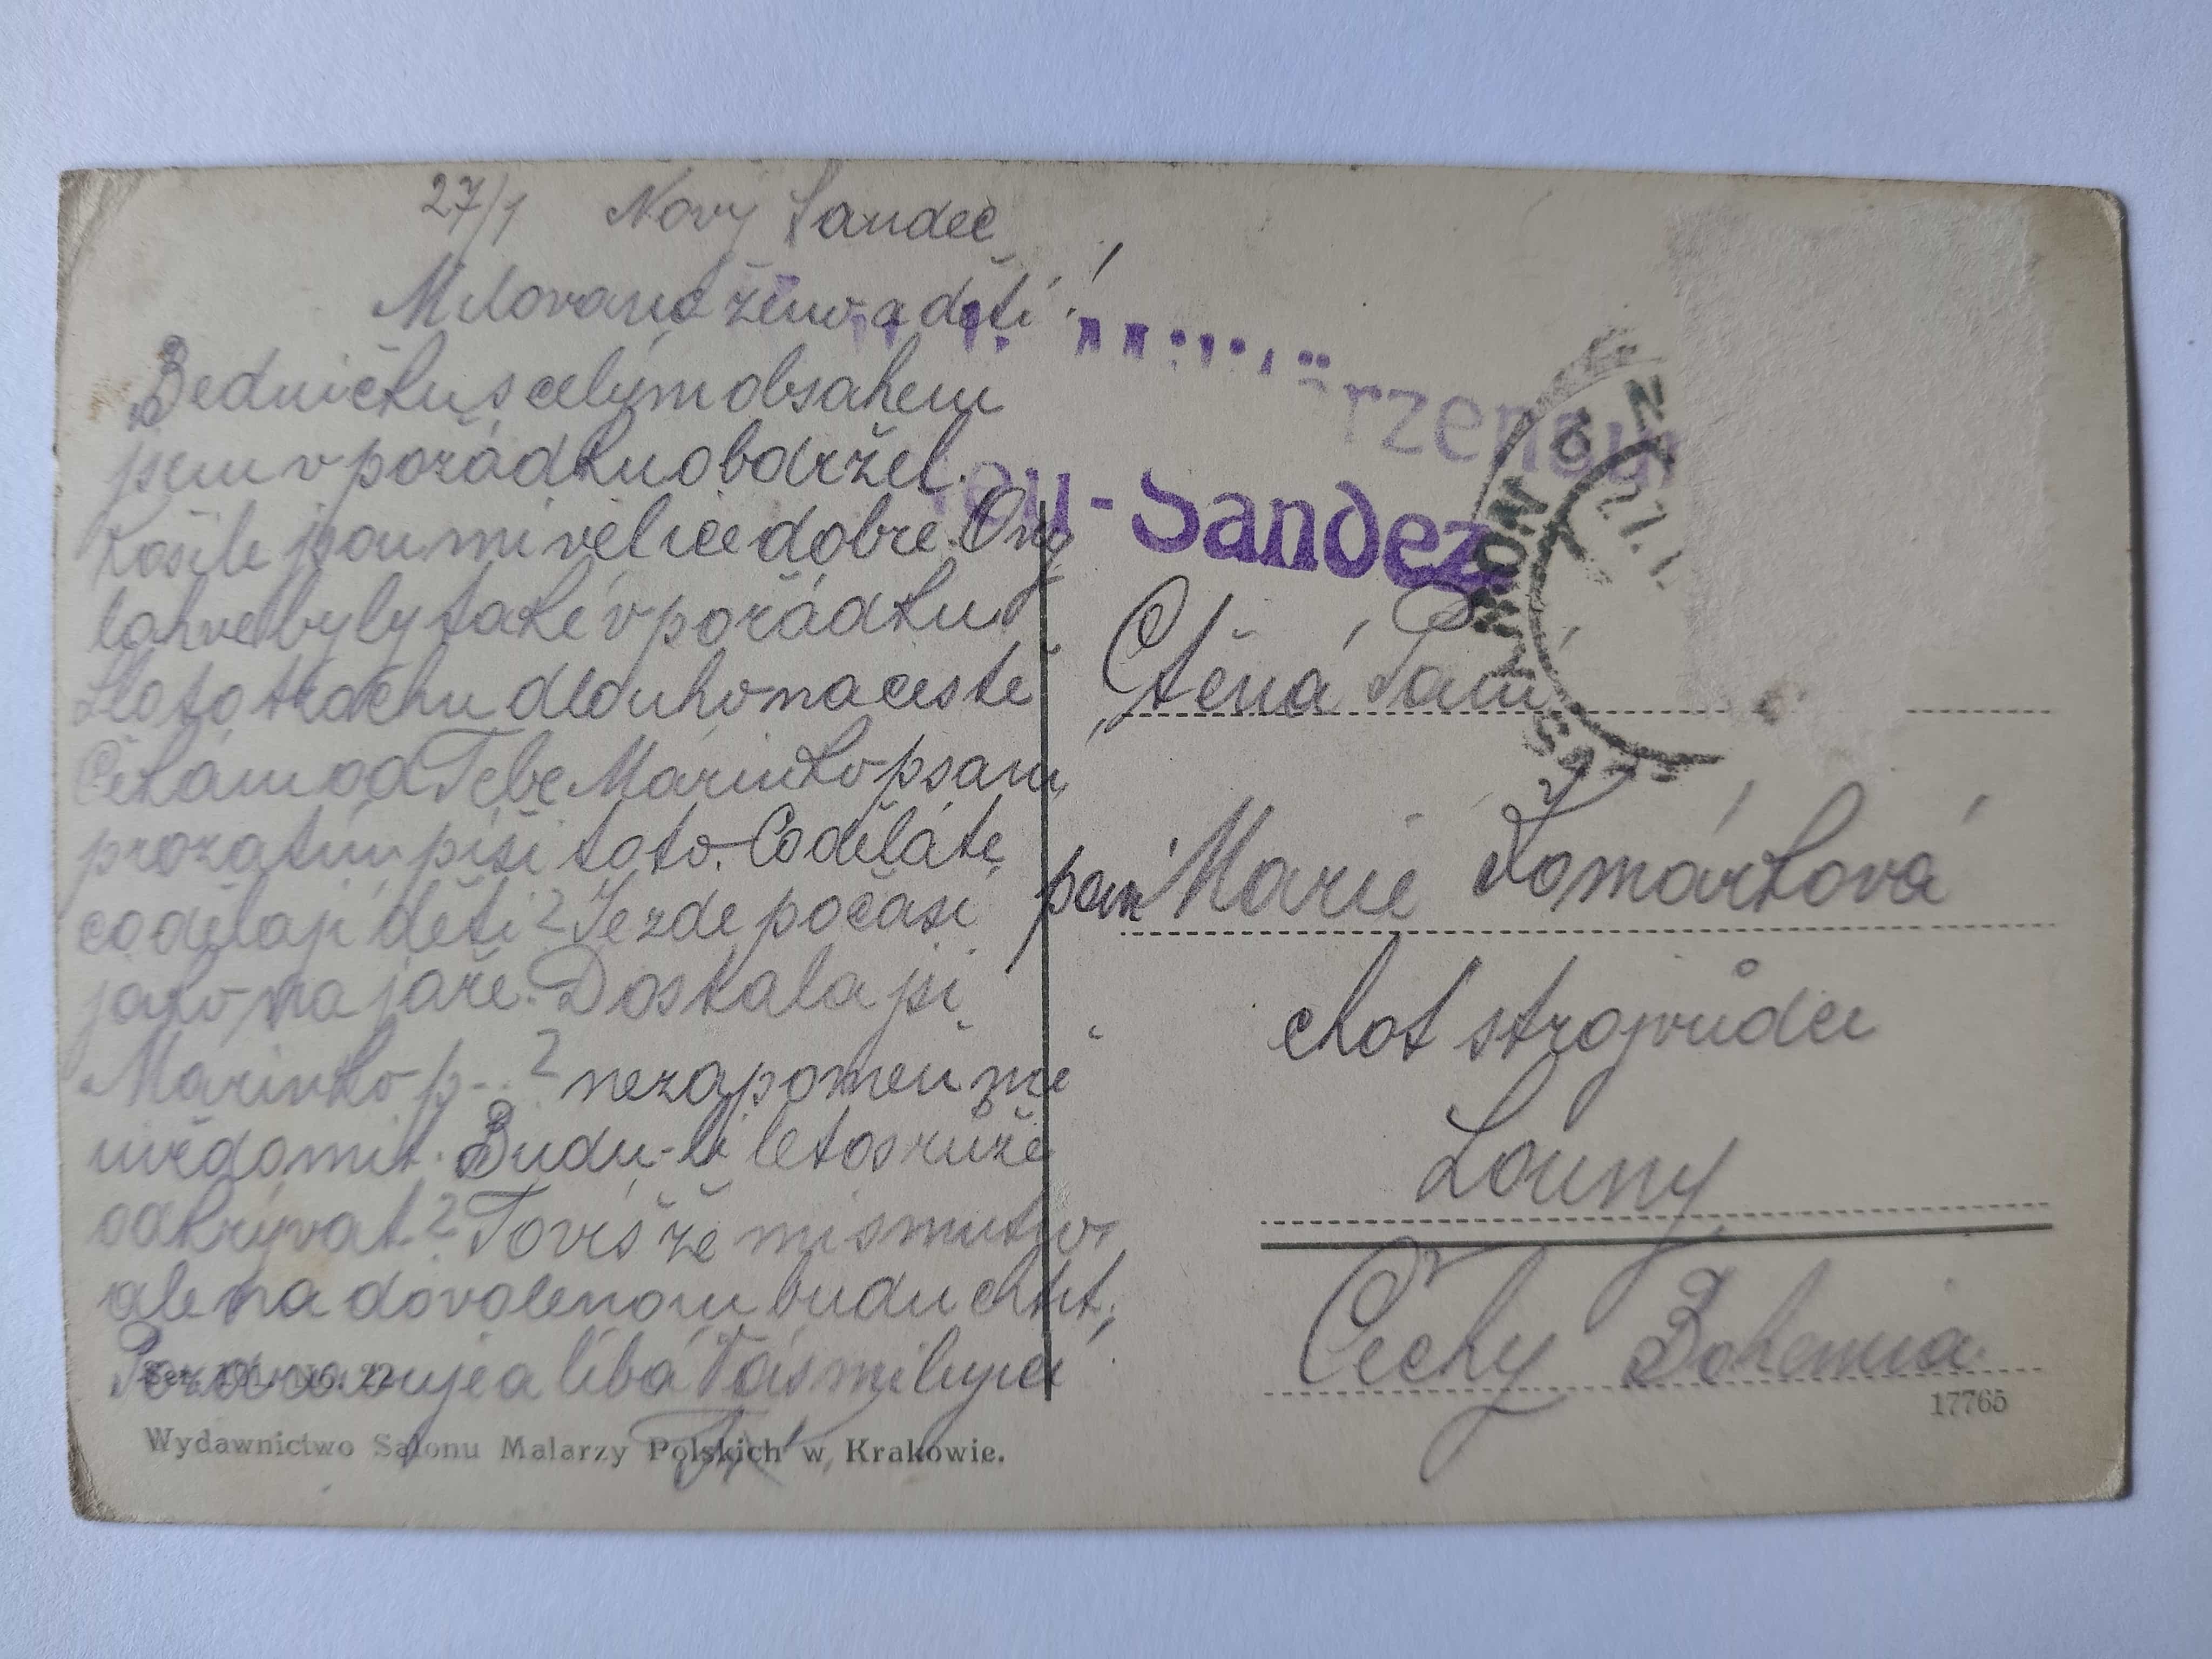 27/1 Nový Sandec
Milovaná ženo a děti!
Bedničku s celým obsahem
jsem v pořádku obdržel.
Košile jsou mi velice dobré. Ony
lahve byly také v pořádku
Šlo to trochu dlouho na cestě
Čekám od Tebe Mařinko psaní,
prozatím píši toto. Co děláte
co dělají děti? Je zde počasí
jako na jaře. Dostala jsi
Mařinko p--? nezapomeň mě
uvědomit. Budu-li letos růže
odkrývat? To víš že mi smutno
ale na dovolenou budu chtít,
Pozdravuje a líbá Vás milující
Ser. 101. No. 22
Wydawnictwo Salonu Malarzy Polskich w Krakowie.
rzensur
Neu-Sandez
NOWY SĄ
27.I.
Ctěná Paní
paní Marie Tomárková
choť strojvůdce
Louny
Čechy Bohemia
17765